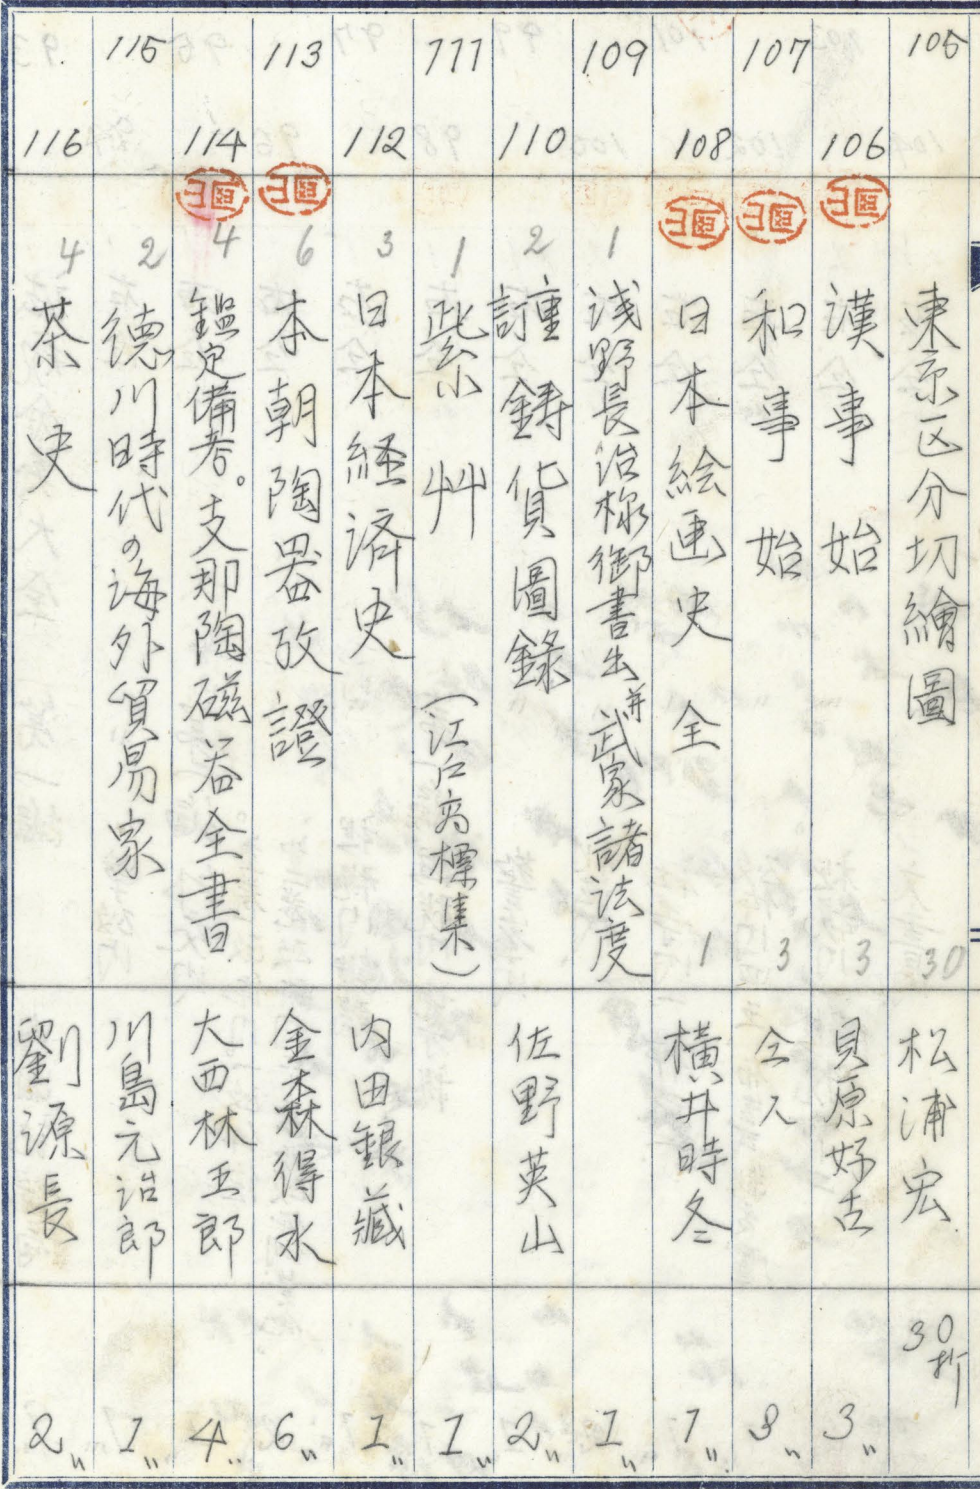 105 東京区分切繪圖 30 松浦宏 30折
106 漢事始 3 貝原好古 3〃
107 和事始 3 仝人 3〃
108 日本絵画史 全 1 横井時冬 1〃
109 1 浅野長治様御書出并武家諸法度 1〃
110 2 訂重鋳貨圖錄 佐野英山 2〃
111 1 紫艸 (江戸商標集) 1〃
112 3 日本経済史 内田銀藏 1〃
113 6 本朝陶器攷證 金森得水 6〃
114 4 鑑定備考。支那陶磁器全書 大西林五郎 4〃
115 2 德川時代の海外貿易家 川島元治郎 1〃
116 4 茶史 劉源長 2〃